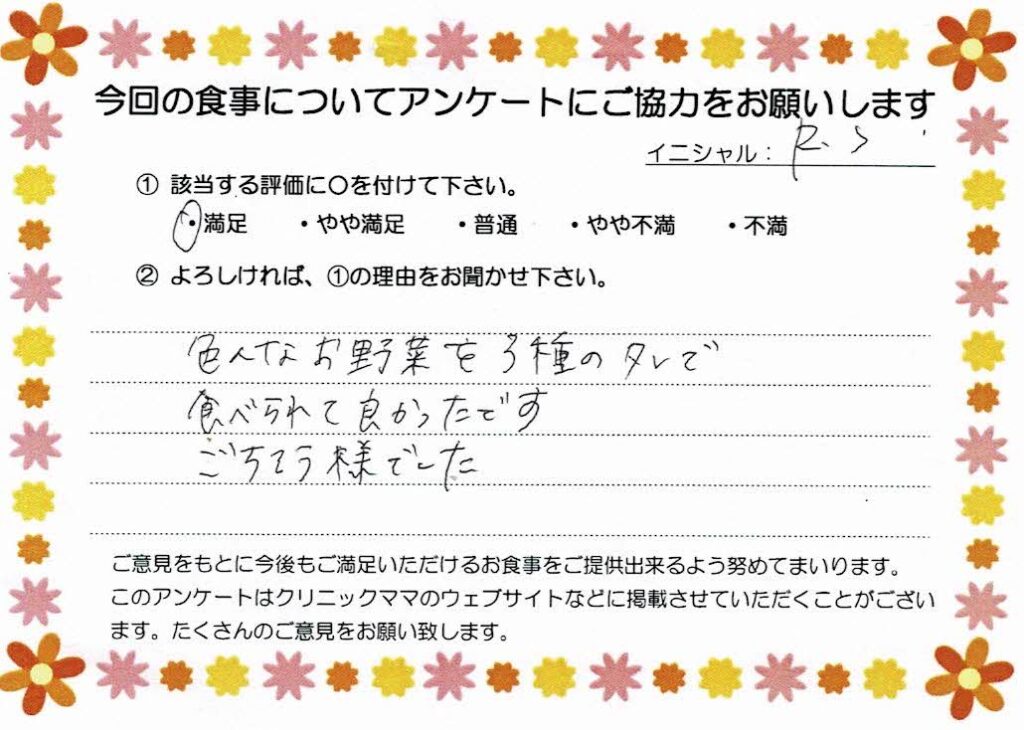 今回の食事についてアンケートにご協力をお願いします
イニシャル： R. S
① 該当する評価に〇を付けて下さい。
・満足 ・やや満足 ・普通 ・やや不満 ・不満
② よろしければ、①の理由をお聞かせ下さい。
色んなお野菜を3種のタレで
食べられて良かったです
ごちそう様でした
ご意見をもとに今後もご満足いただけるお食事をご提供出来るよう努めてまいります。
このアンケートはクリニックママのウェブサイトなどに掲載させていただくことがござい
ます。たくさんのご意見をお願い致します。